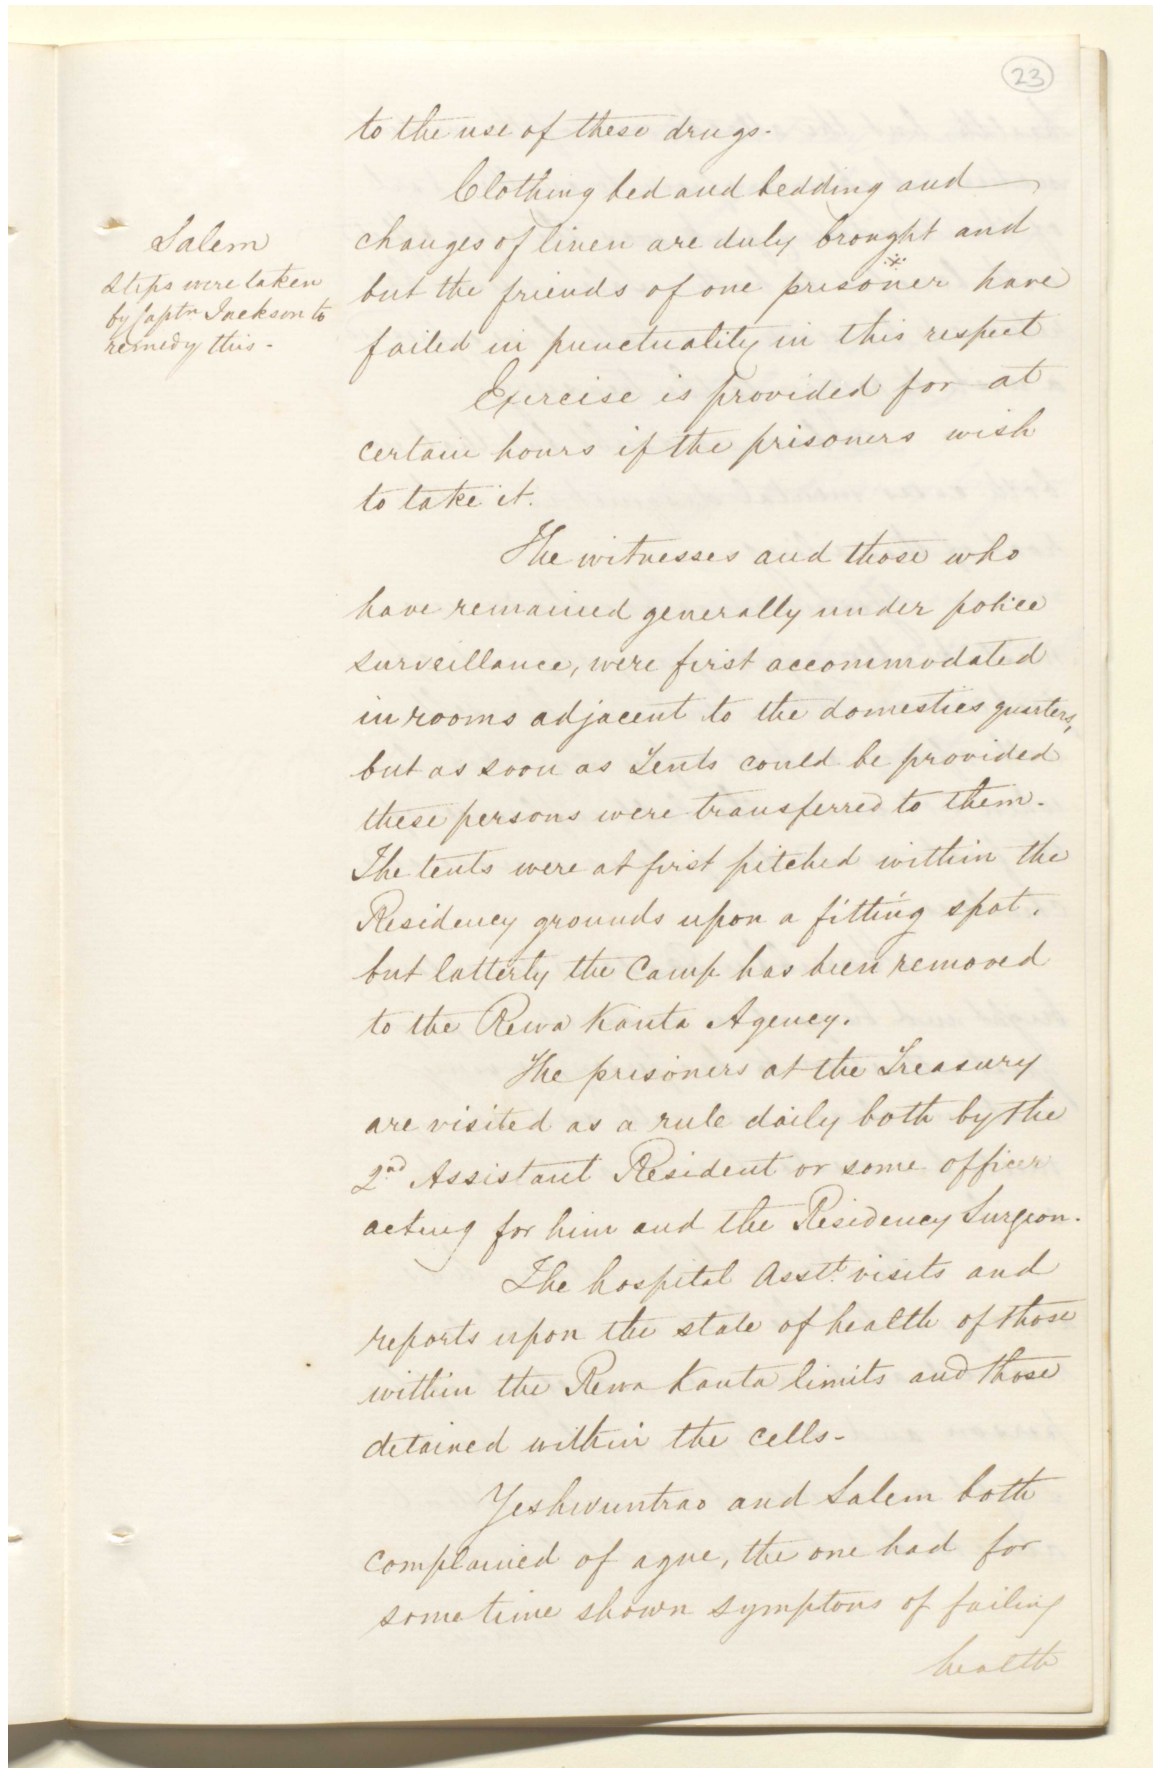 23
to the use of these drugs.
Clothing bed and bedding and
changes of linen are duly brought and
but the friends of one prisoner have
failed in punctuality in this respect
Salem
steps were taken
by Captn Jackson to
remedy this -
Exercise is provided for at
certain hours if the prisoners wish
to take it.
The witnesses and those who
have remained generally under police
surveillance, were first accommodated
in rooms adjacent to the domestics quarters,
but as soon as Tents could be provided
these persons were transferred to them.
The tents were at first pitched within the
Residency grounds upon a fitting spot,
but latterly the Camp has been removed
to the Rewa Kanta Agency.
The prisoners at the Treasury
are visited as a rule daily both by the
2nd Assistant Resident or some officer
acting for him and the Residency Surgeon.
The hospital Asstt. visits and
reports upon the state of health of those
within the Rewa Kanta limits and those
detained within the cells -
Yeshwuntrao and Salem both
complained of ague, the one had for
some time shown symptons of failing
health